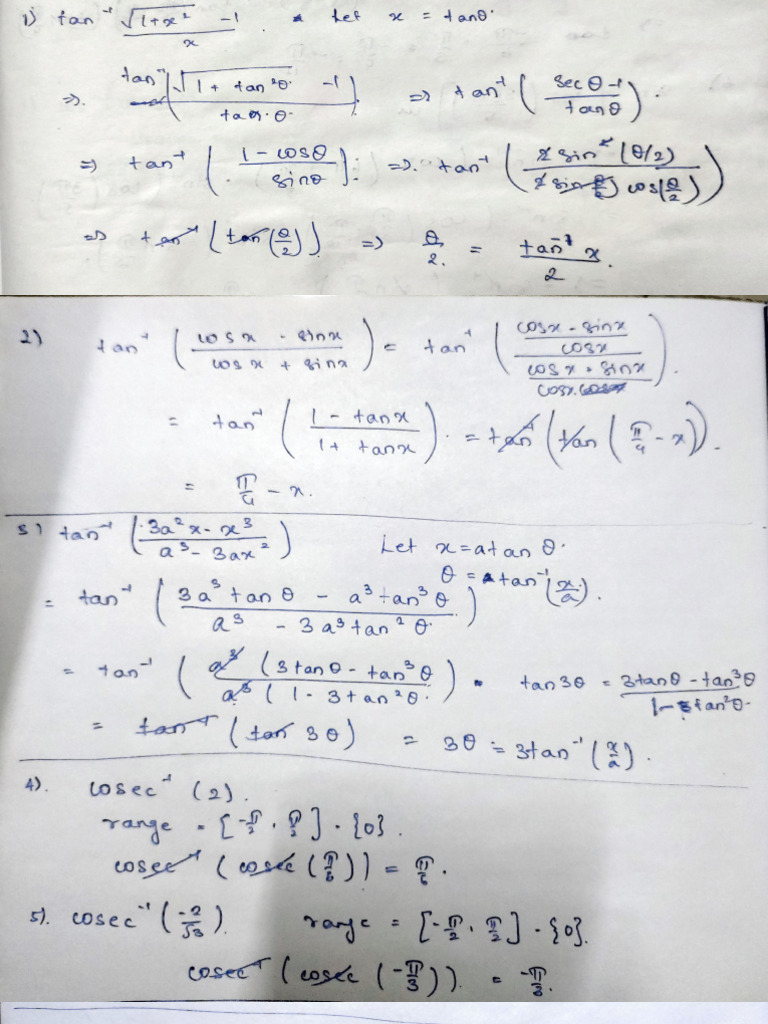 1) tan⁻¹ (√(1+x²) - 1)/x . Let x = tanθ.
⇒ tan⁻¹ ((√(1 + tan²θ) - 1)/(tan.θ)) ⇒ tan⁻¹ ((secθ - 1)/(tanθ)).
⇒ tan⁻¹ ((1 - cosθ)/(sinθ)). ⇒ tan⁻¹ ((2 sin²(θ/2))/(2 sin(θ/2) cos(θ/2)))
⇒ tan⁻¹ (tan(θ/2)). ⇒ θ/2. = (tan⁻¹ x)/2.
2) tan⁻¹ ((cosx - sinx)/(cosx + sinx)) = tan⁻¹ (((cosx - sinx)/cosx)/((cosx + sinx)/cosx)).
= tan⁻¹ ((1 - tanx)/(1 + tanx)). = tan⁻¹ (tan (π/4 - x)).
= π/4 - x.
3) tan⁻¹ ((3a²x - x³)/(a³ - 3ax²)) Let x = a tan θ.
θ = tan⁻¹(x/a).
= tan⁻¹ ((3a³ tan θ - a³ tan³ θ)/(a³ - 3a³ tan² θ))
= tan⁻¹ ((a³ (3tanθ - tan³θ))/(a³ (1 - 3tan²θ))) . tan3θ = (3tanθ - tan³θ)/(1 - 3tan²θ)
= tan⁻¹ (tan 3θ) = 3θ = 3tan⁻¹ (x/a).
4). cosec⁻¹ (2).
range = [-π/2, π/2] - {0}.
cosec⁻¹ (cosec (π/6)) = π/6.
5). cosec⁻¹ (-2/√3). range = [-π/2, π/2] - {0}.
cosec⁻¹ (cosec (-π/3)). = -π/3.